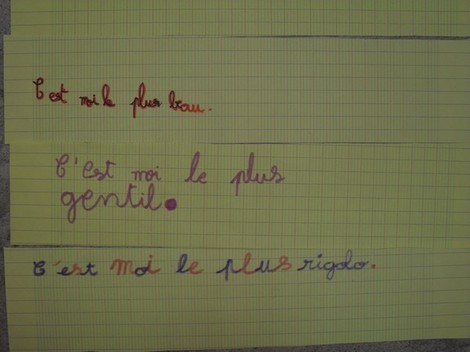 C'est moi le plus beau.
C'est moi le plus
gentil.
C'est moi le plus rigolo.